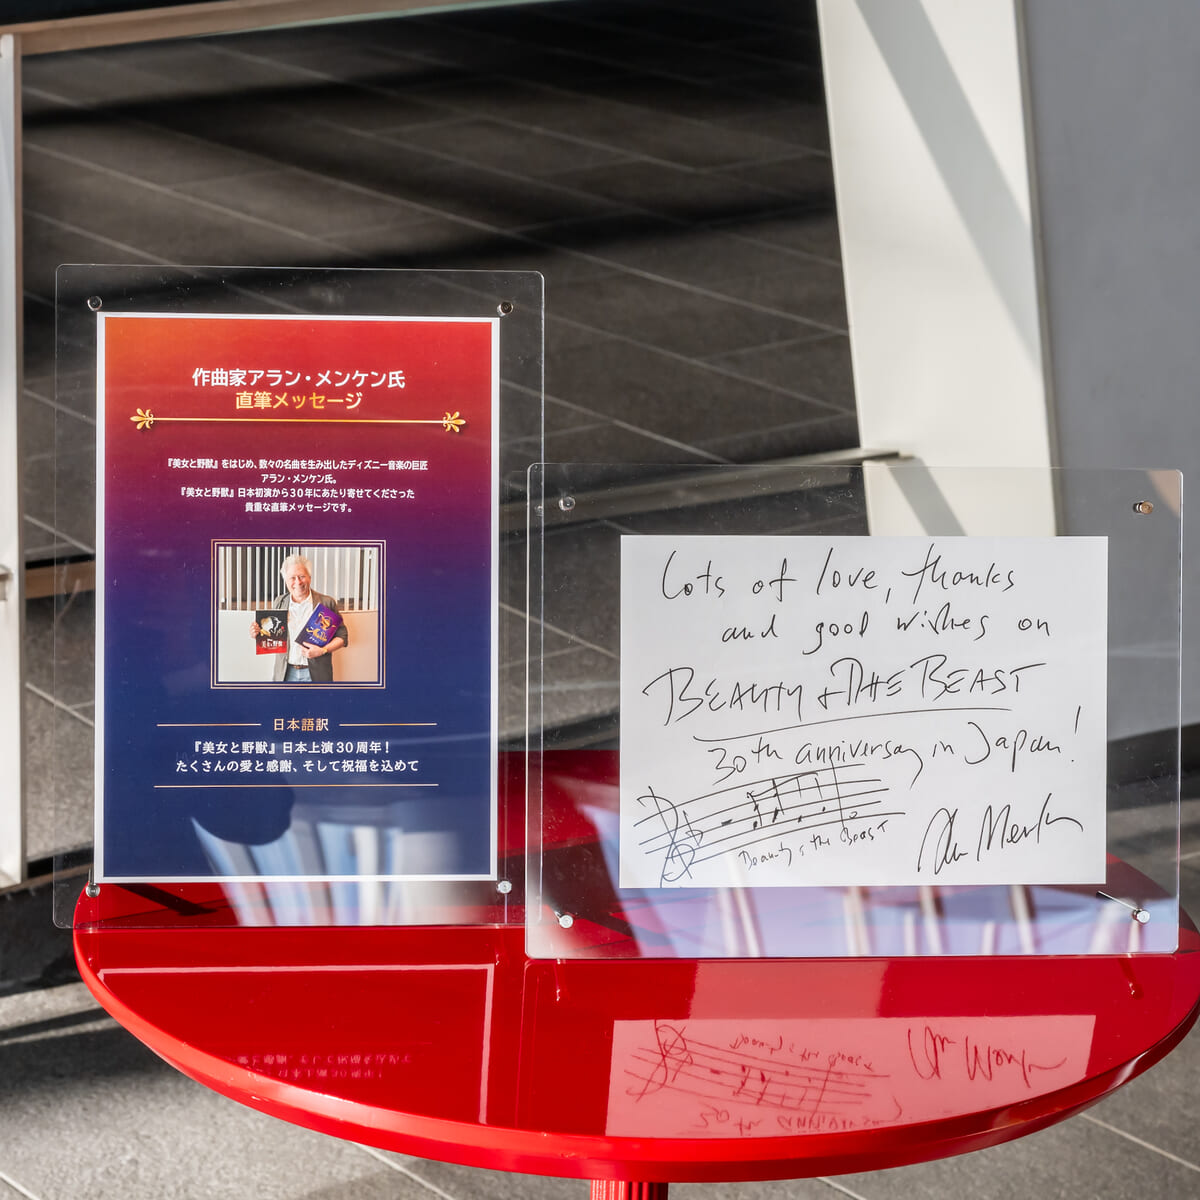 作曲家アラン・メンケン氏
直筆メッセージ
『美女と野獣』をはじめ、数々の名曲を生み出したディズニー音楽の巨匠
アラン・メンケン氏。
『美女と野獣』日本初演から30年にあたり寄せてくださった
貴重な直筆メッセージです。
美女と野獣
日本語訳
『美女と野獣』日本上演30周年！
たくさんの愛と感謝、そして祝福を込めて
Lots of love, thanks
and good wishes on
BEAUTY & THE BEAST
30th anniversary in Japan!
Beauty & the Beast
Alan Menken